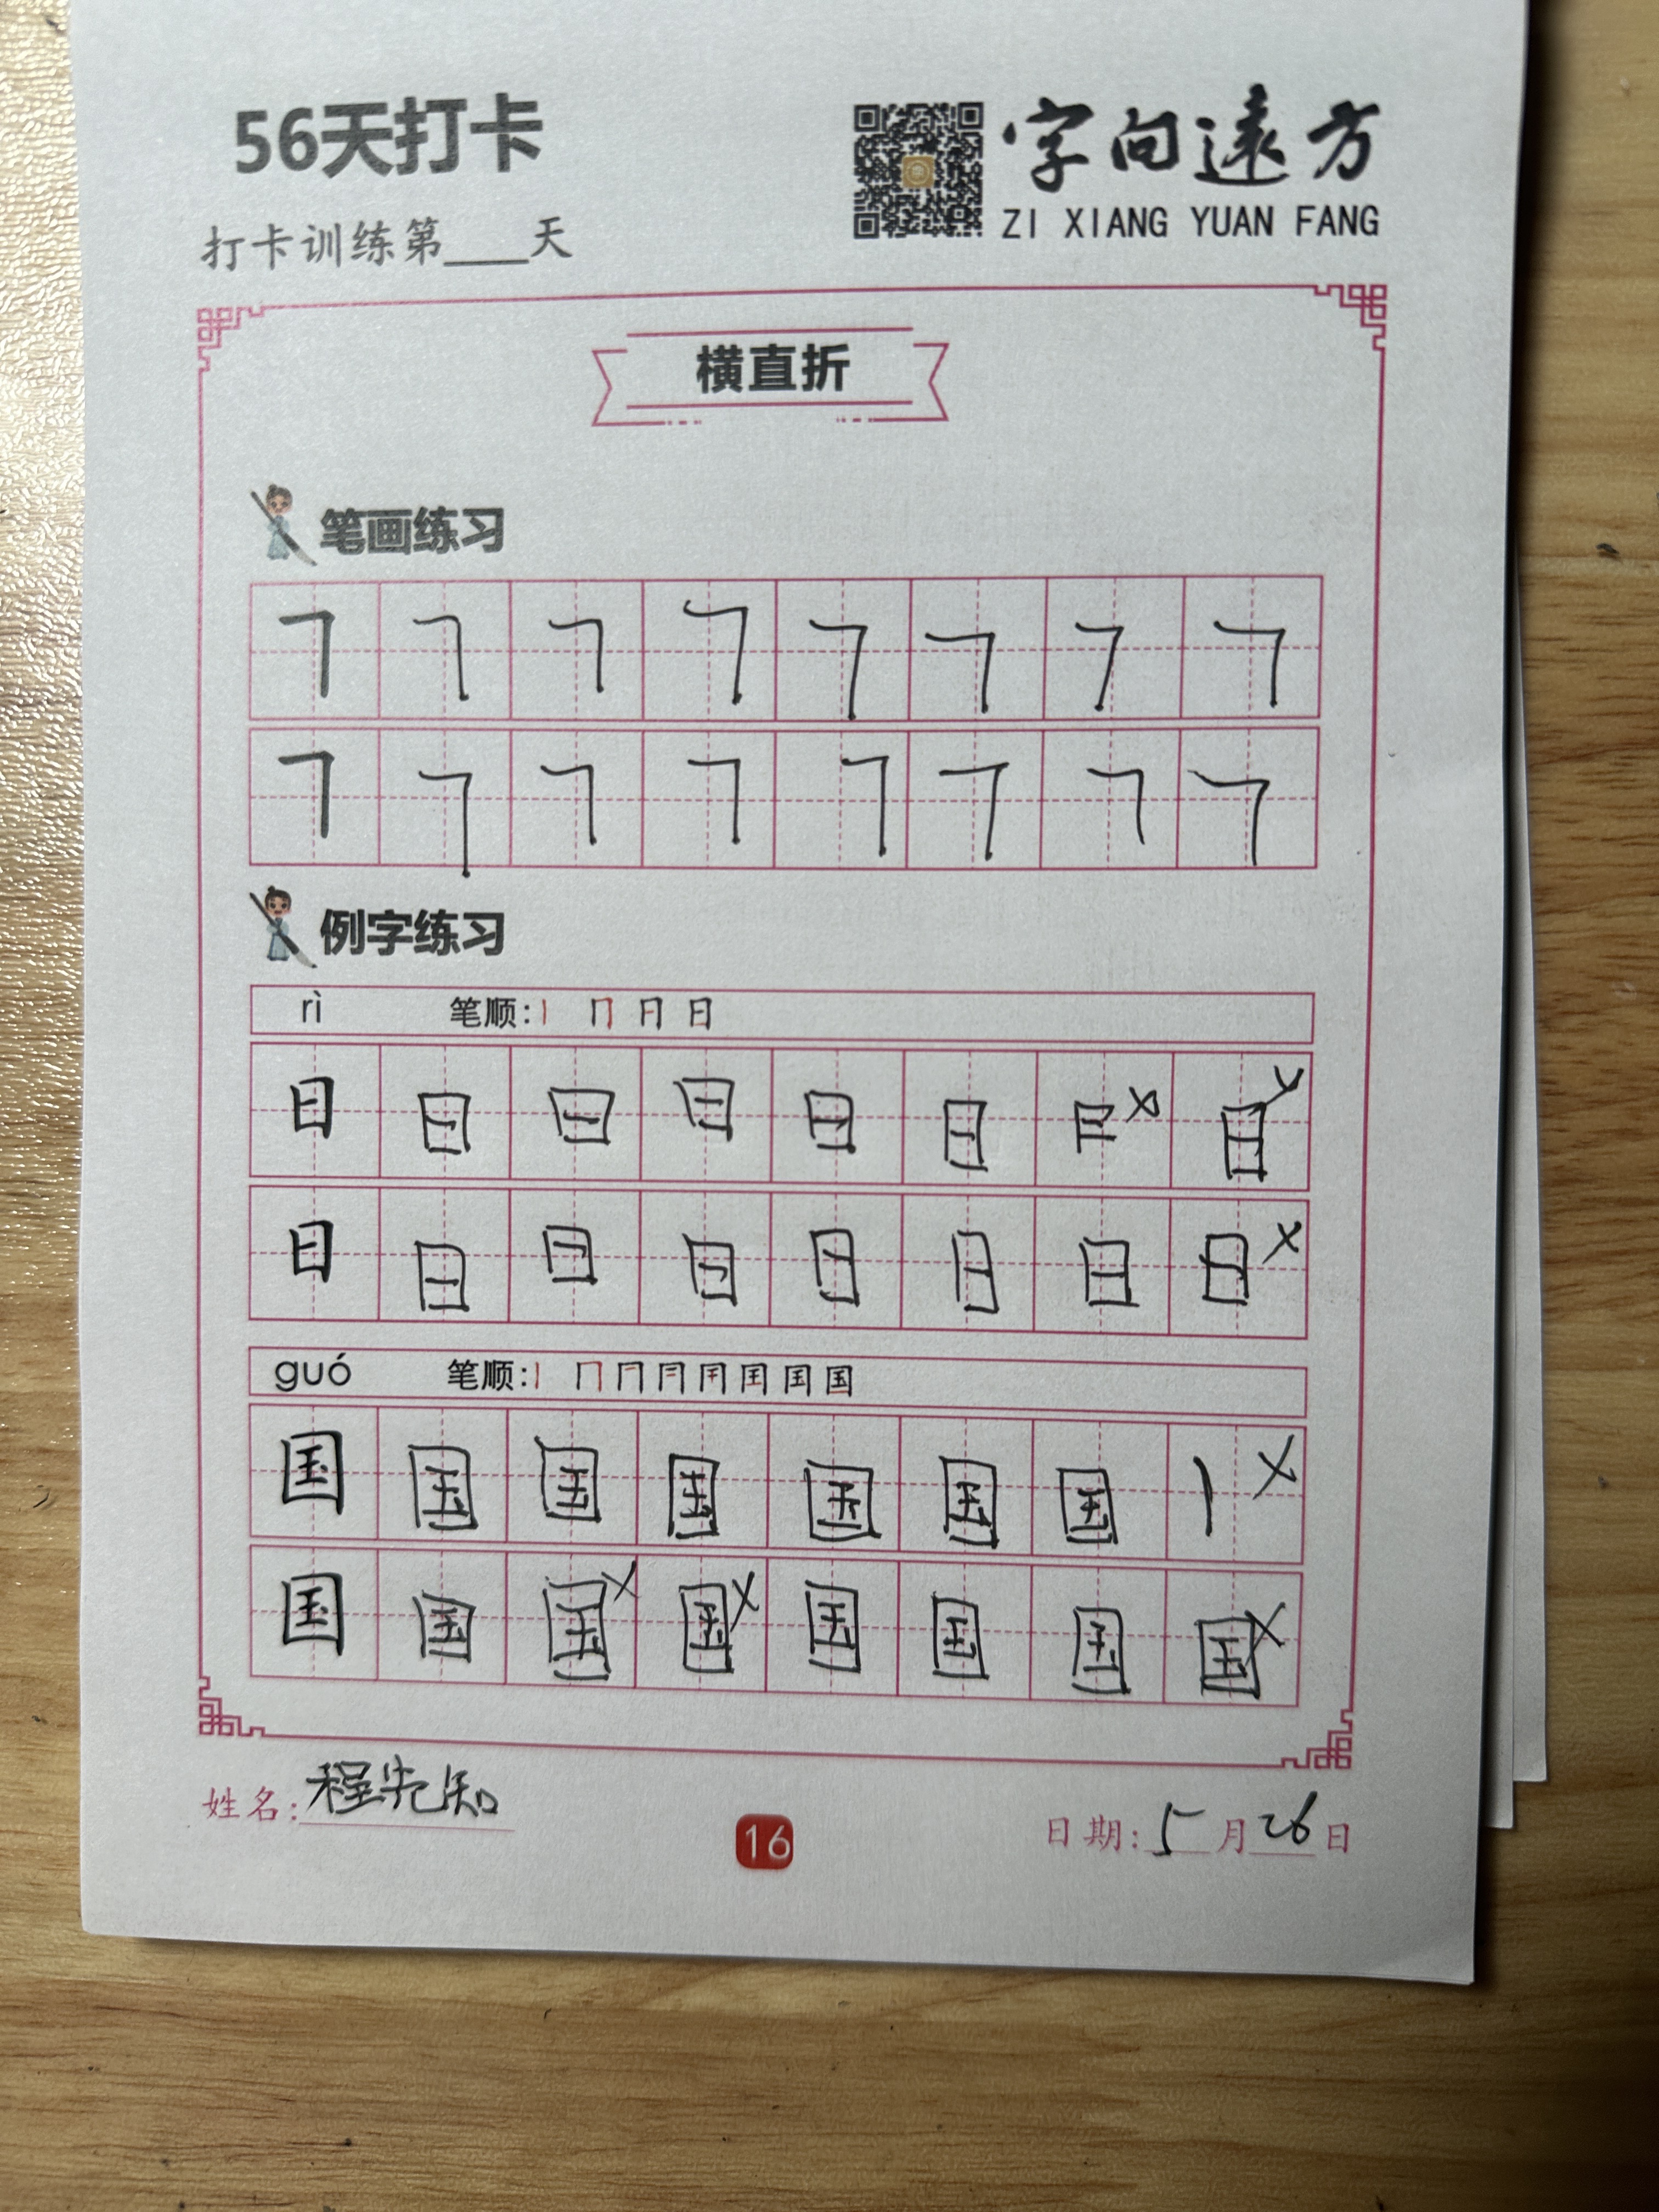 56天打卡
字向遠方
ZI XIANG YUAN FANG
打卡训练第____天
横直折
笔画练习
㇕ ㇕ ㇕ ㇕ ㇕ ㇕ ㇕ ㇕
㇕ ㇕ ㇕ ㇕ ㇕ ㇕ ㇕ ㇕
例字练习
rì 笔顺:
日 日 日 日 日 日 日 日
日 日 日 日 日 日 日 日
guó 笔顺:
国 国 国 国 国 国 国
国 国 国 国 国 国 国 国
姓名:程先知
16
日期:5月26日